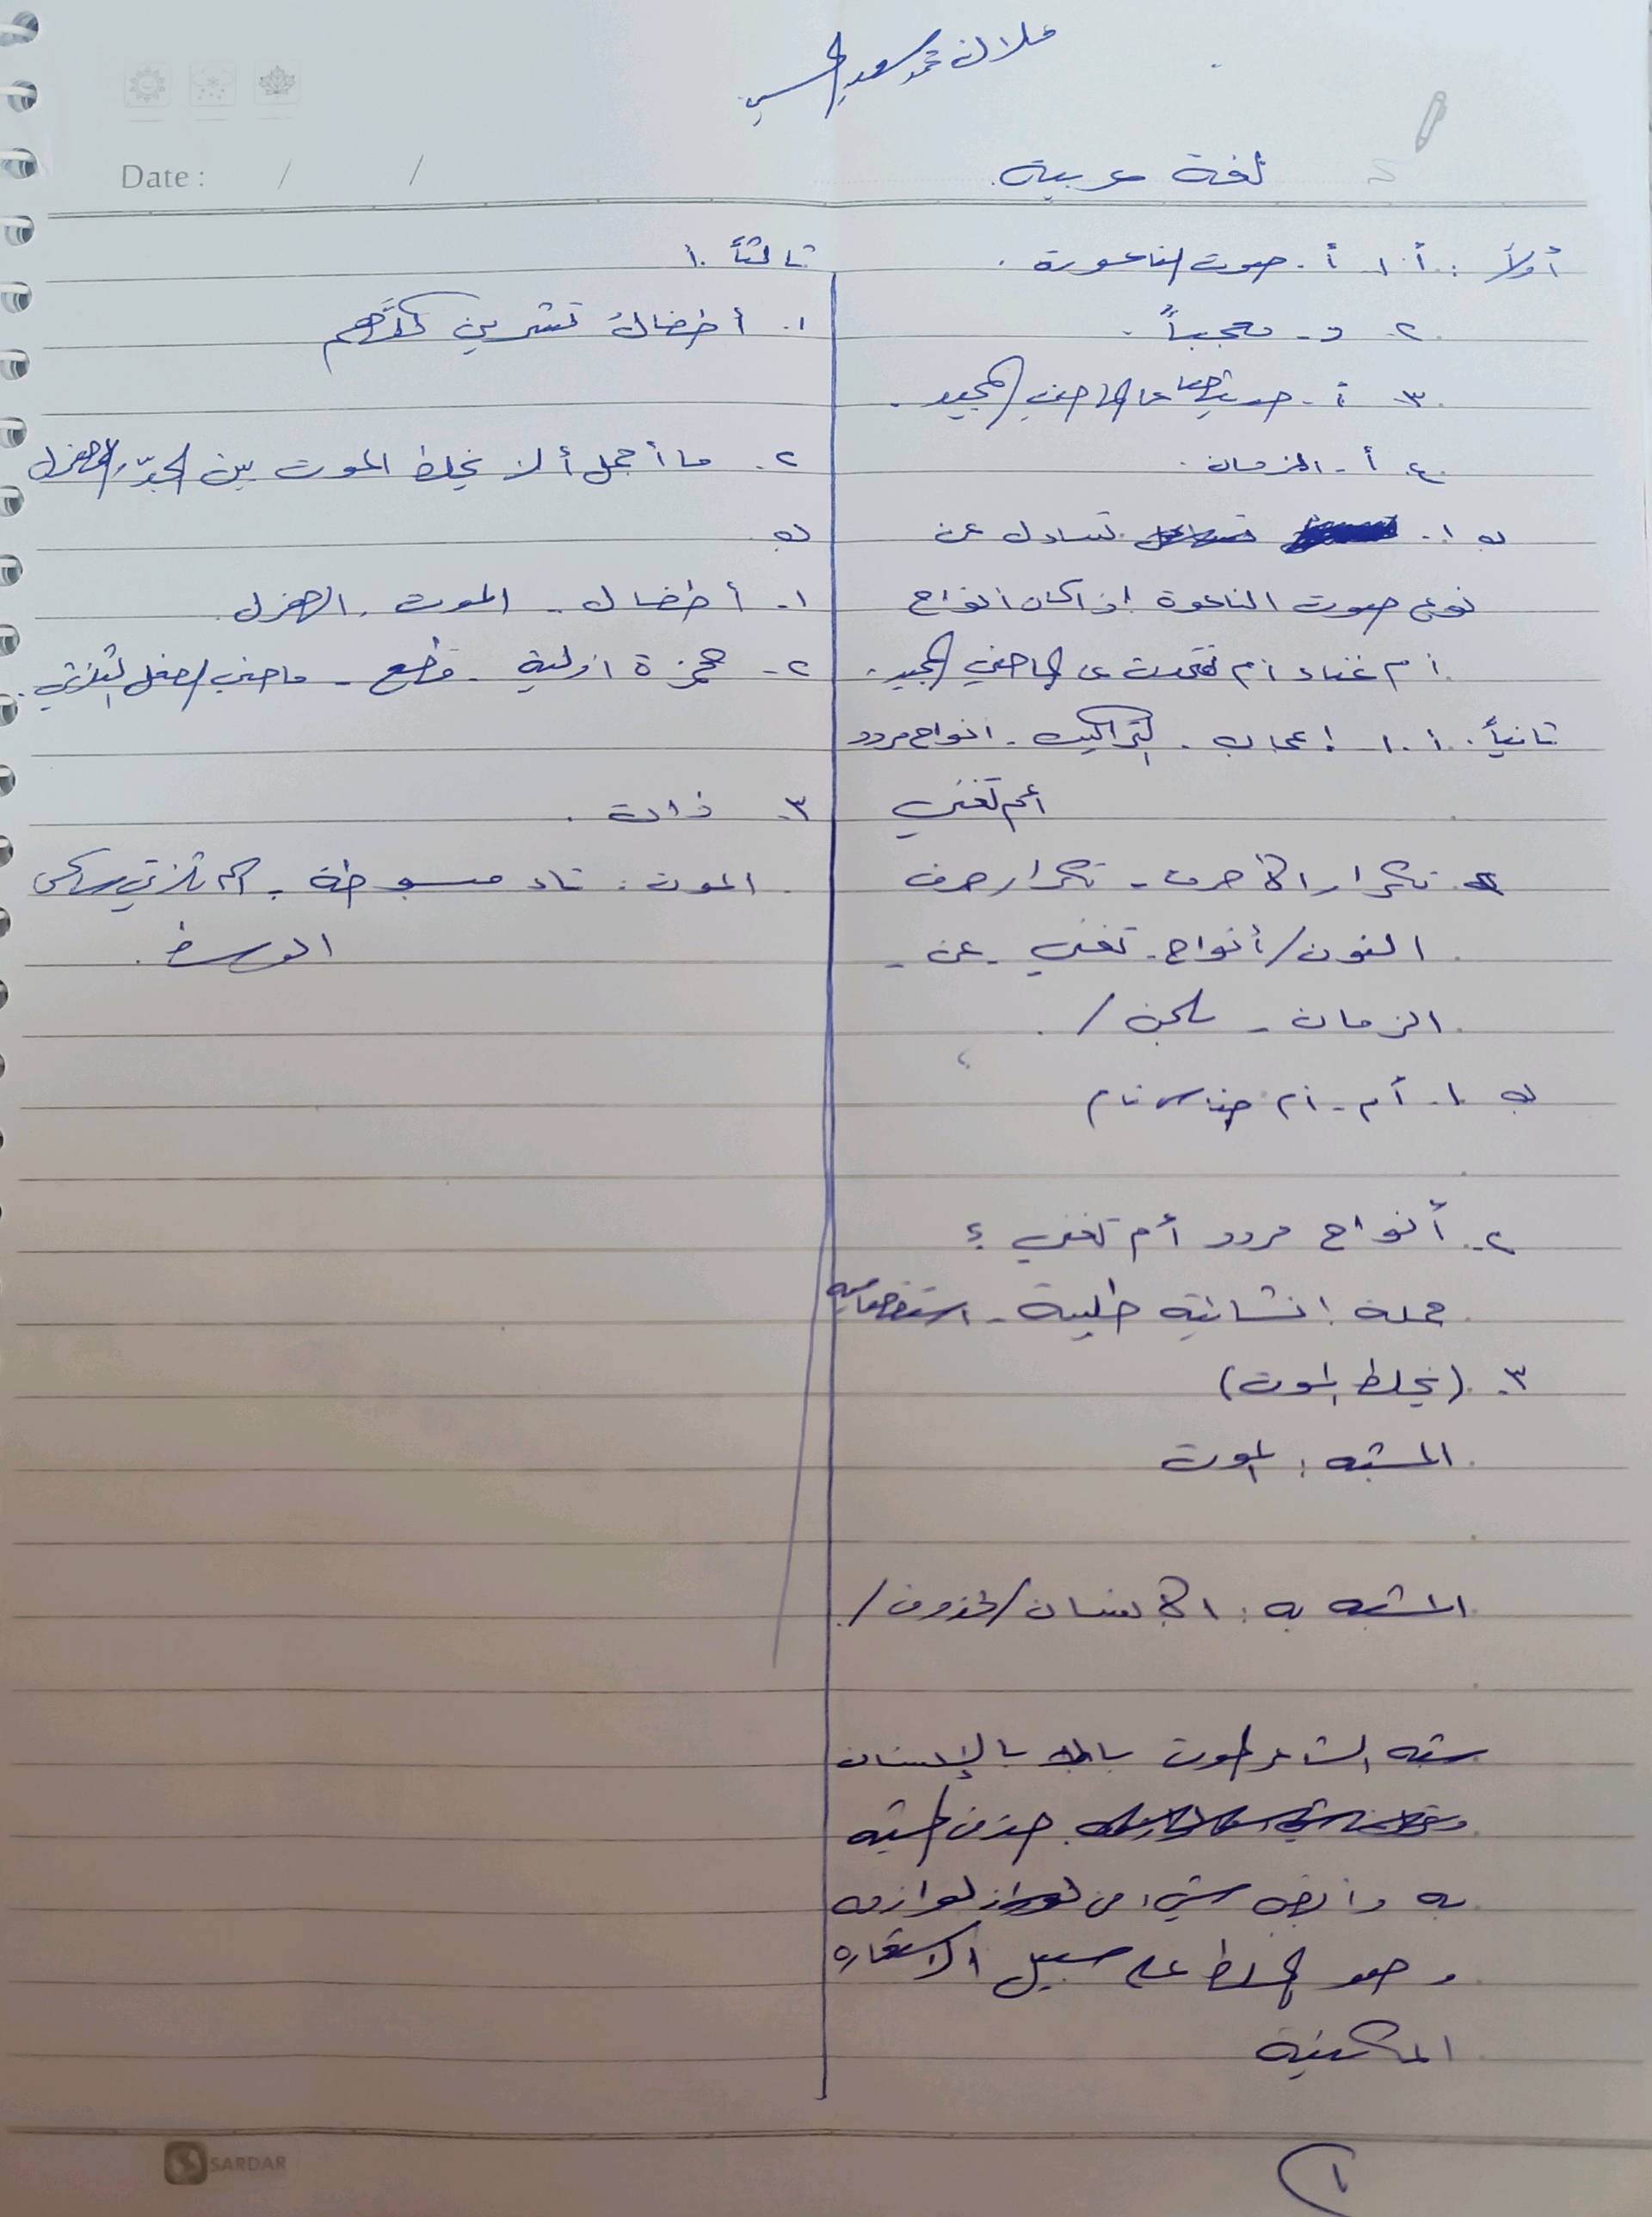 محمد سعيد
Date: / /
لغة عربية.
أولاً: أ. ١. أ. صوت الناعورة.
٢. د. معجباً.
٣. أ. حديثها عن الماضي المجيد.
٤. أ. الزمان.
ب ١. تساءل عن
نوع صوت الناعورة إذا كان أنواح
أم غناء أم تتحدث عن الماضي المجيد.
ثانياً. أ. ١. إعجاب. التراكيب. أنواح مردد
أم تغني
٢. تكرار الأحرف - تكرار حرف
النون / أنواح - تغني - عن -
الزمان - لحن /.
ب ١. أم - أم جناس تام
٢. أنواح مردد أم تغني ؟
جملة إنشائية طلبية - استفهامية
٣. (يخلط الموت)
المشبه: الموت
المشبه به: الإنسان / محذوف /.
شبه الشاعر الموت بالإنسان
حذف المشبه
به وأبقى شيء من لوازمه
وهو الخلط على سبيل الاستعارة
المكنية
ثالثاً. أ
١. أطفالُ تشرين كلَّهم
٢. ما أجمل ألا يخلط الموت بين الجدّ والهزل
ب.
١. أطفال - الموت. الهزل.
٢. همزة أولية - قطع - ماضي الفعل الثلاثي.
٣. ذات.
الموت: تاء مبسوطة - اسم ثلاثي ساكن
الوسط.
SARDAR
١